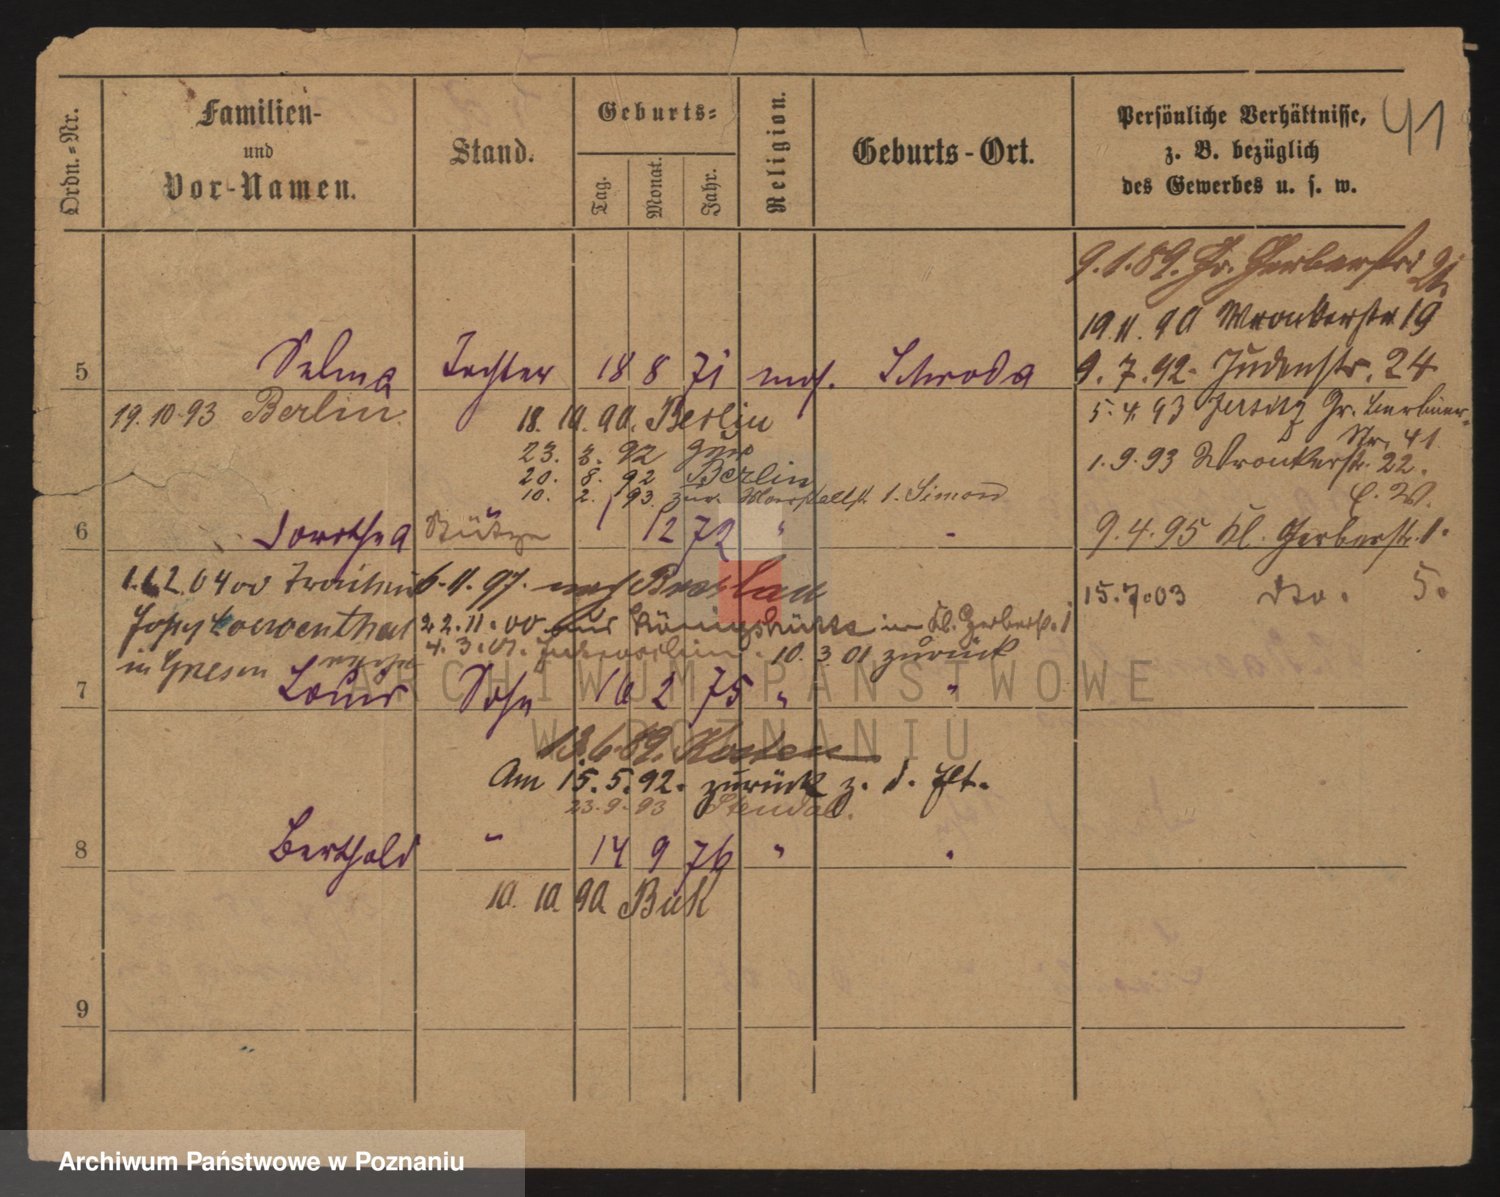 Ordn.-Nr.
Familien-
und
Vor-Namen.
Stand.
Geburts-
Tag.
Monat.
Jahr.
Religion.
Geburts-Ort.
Persönliche Verhältnisse,
z. B. bezüglich
des Gewerbes u. s. w.
41
9.1.89. Gr. Gerberstr.
19.11.90 Wronkerstr 19
5 Selma Tochter 18 8 71 mos. Schroda 9.7.92. Judenstr. 24
19.10.93 Berlin. 18.10.90. Berlin 5.4.93 Jersitz Gr. Berliner-
Str. 41
23. 3. 92 zur.
20. 8. 92 Berlin 1.9.93 Wronkerstr. 22.
10. 2. 93 zur. 1. Simon
6 Dorothea Stütze 1 12 72 " - 9.4.95 Kl. Gerberstr. 1.
6.11.97. nach Breslau 15.7.03 do. 5.
Loewenthal 22.11.00 aus Königshütte in Kl. Gerberstr. 1
in Gnesen 4.3.01. 10.3.01 zurück
7 Louis Sohn 16 2 75 " "
13.6.89. Kosten
Am 15.5.92. zurück z. d. Elt.
23.9.93 Stendal.
8 Berthold " 14 9 76 " "
10. 10. 90 Buk
9
ARCHIWUM PAŃSTWOWE
W POZNANIU
Archiwum Państwowe w Poznaniu